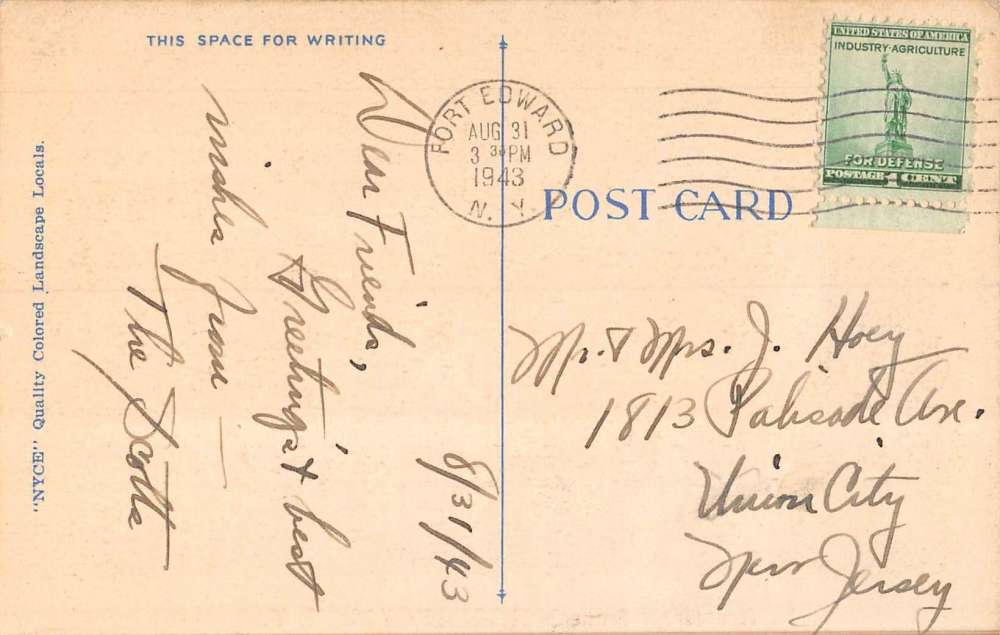 THIS SPACE FOR WRITING
8/31/43
Dear Friends,
Greetings & best
wishes from —
The Scotts
"NYCE" Quality Colored Landscape Locals.
FORT EDWARD
AUG 31
3 30 PM
1943
N. Y.
POST CARD
UNITED STATES OF AMERICA
INDUSTRY·AGRICULTURE
FOR DEFENSE
POSTAGE 1 CENT
Mr. & Mrs. J. Hoey
1813 Palisade Ave.
Union City
New Jersey